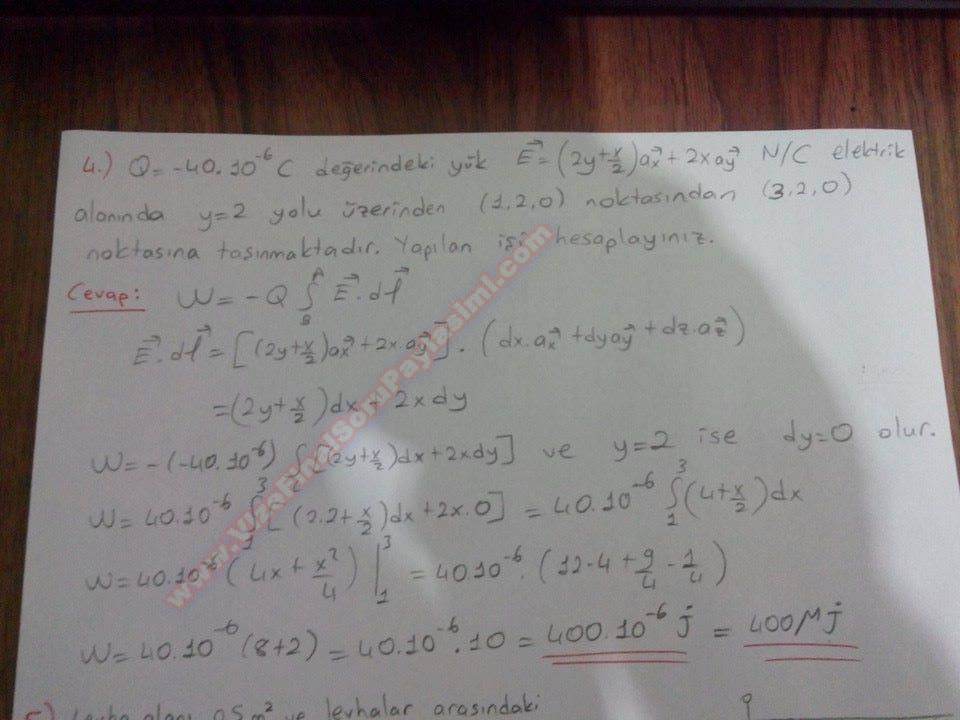 4.) Q = -40.10⁻⁶ C değerindeki yük E⃗ = (2y+x/2)ax⃗ + 2x ay⃗ N/C elektrik
alanında y=2 yolu üzerinden (1,2,0) noktasından (3,2,0)
noktasına taşınmaktadır. Yapılan işi hesaplayınız.
Cevap: W = -Q ∫_B^A E⃗.dl⃗
E⃗.dl⃗ = [(2y+x/2)ax⃗ + 2x.ay⃗] . (dx.ax⃗ + dyay⃗ + dz.az⃗)
= (2y+x/2)dx + 2xdy
W = -(-40.10⁻⁶) ∫ [(2y+x/2)dx + 2xdy] ve y=2 ise dy=0 olur.
W = 40.10⁻⁶ ∫_1^3 [(2.2+x/2)dx + 2x.0] = 40.10⁻⁶ ∫_1^3 (4+x/2)dx
W = 40.10⁻⁶ (4x + x²/4) |_1^3 = 40 10⁻⁶. (12-4 + 9/4 - 1/4)
W = 40.10⁻⁶ (8+2) = 40.10⁻⁶.10 = 400.10⁻⁶ j = 400 μj
5) Levha alanı 0,5 m² ve levhalar arasındaki
www.VizeFinalSoruPaylasimi.com